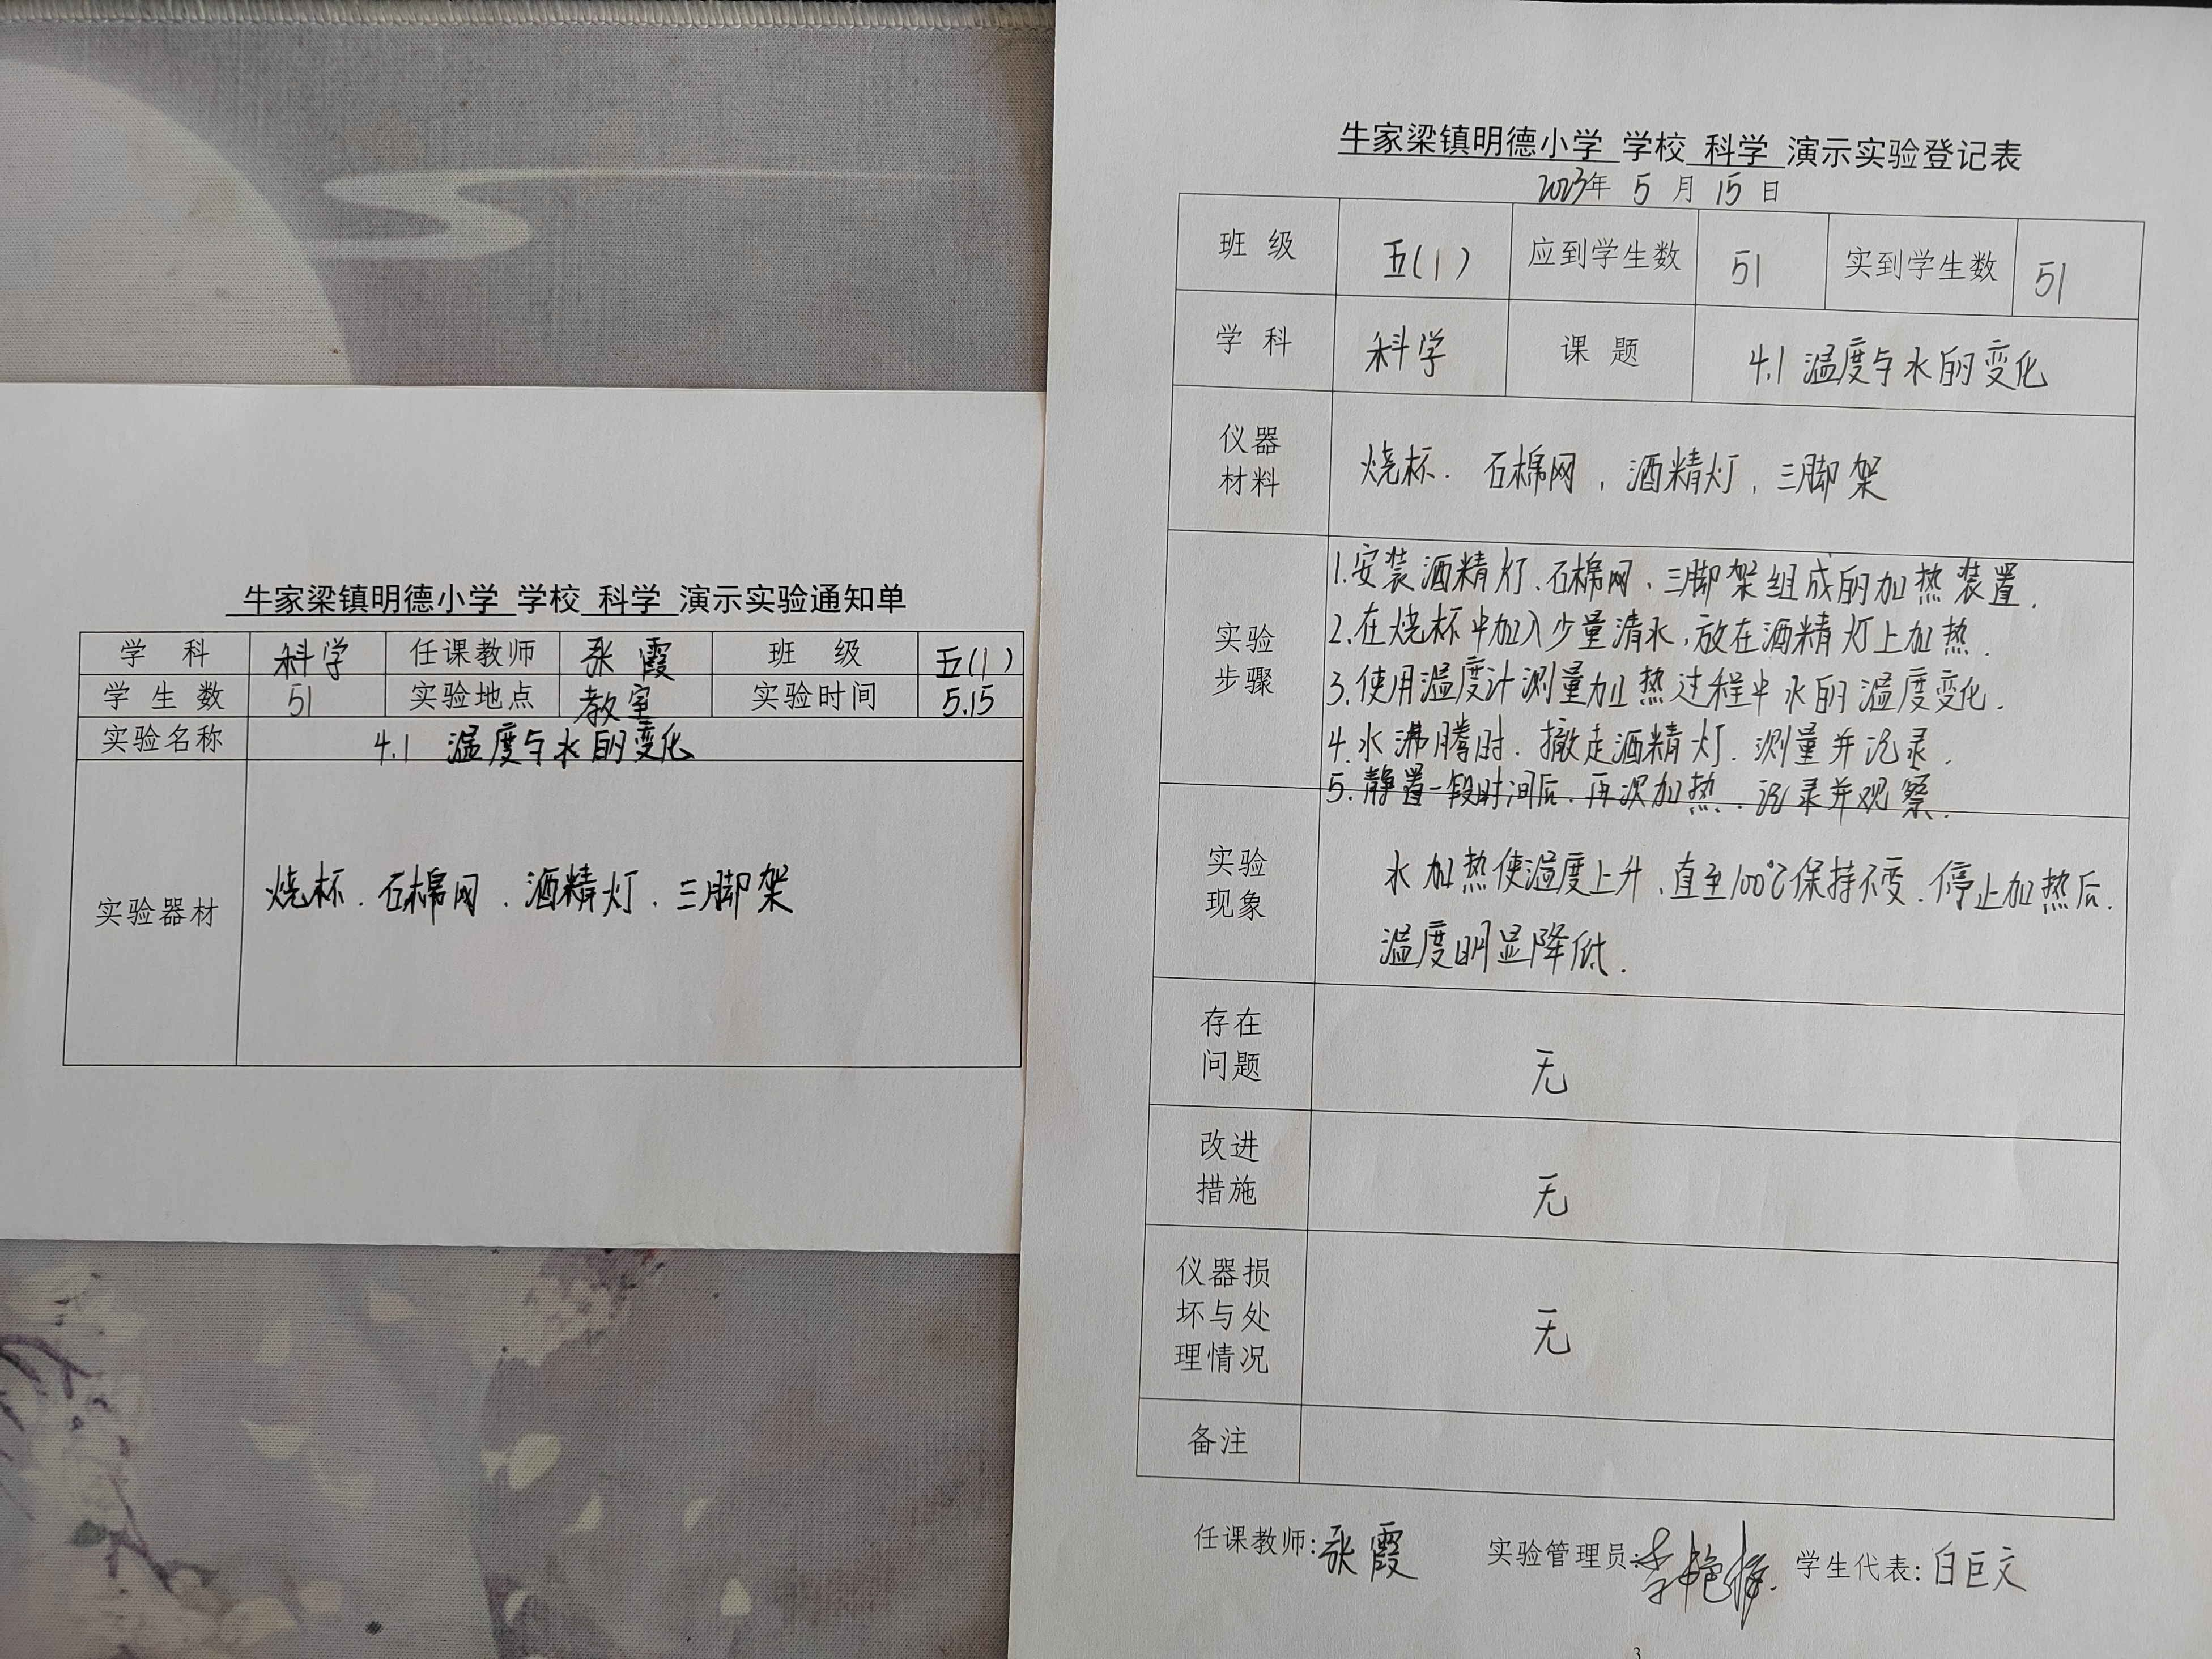 牛家梁镇明德小学 学校 科学 演示实验通知单
学 科 科学 任课教师 张霞 班 级 五(1)
学 生 数 51 实验地点 教室 实验时间 5.15
实验名称 4.1 温度与水的变化
实验器材 烧杯．石棉网．酒精灯．三脚架
牛家梁镇明德小学 学校 科学 演示实验登记表
2023年 5 月 15 日
班 级 五(1) 应到学生数 51 实到学生数 51
学 科 科学 课 题 4.1 温度与水的变化
仪器
材料
烧杯．石棉网，酒精灯，三脚架
实验
步骤
1.安装酒精灯、石棉网、三脚架组成的加热装置．
2.在烧杯中加入少量清水，放在酒精灯上加热．
3.使用温度计测量加热过程中水的温度变化．
4.水沸腾时．撤走酒精灯．测量并记录．
5.静置一段时间后．再次加热．记录并观察．
实验
现象
水加热使温度上升、直至100℃保持不变．停止加热后．
温度明显降低．
存在
问题
无
改进
措施
无
仪器损
坏与处
理情况
无
备注
任课教师:张霞 实验管理员: 学生代表:白巨文
3